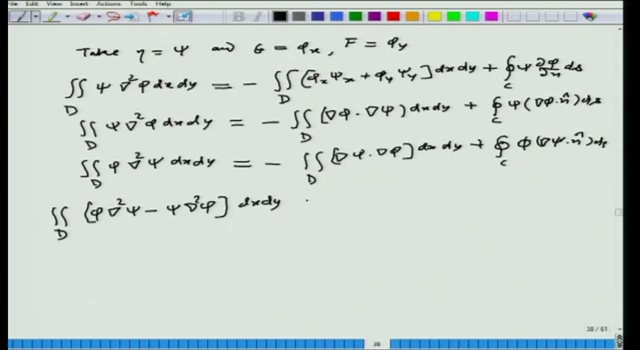 File Edit View Insert Actions Tools Help
Take η = Ψ and G = φ_x, F = φ_y
∬_D Ψ ∇²φ dxdy = - ∬_D [φ_x Ψ_x + φ_y Ψ_y] dxdy + ∮_C Ψ ∂φ/∂n ds
∬_D Ψ ∇²φ dxdy = - ∬_D (∇φ · ∇Ψ) dxdy + ∮_C Ψ (∇φ · n̂) ds
∬_D φ ∇²Ψ dxdy = - ∬_D [∇φ · ∇φ] dxdy + ∮_C φ (∇Ψ · n̂) ds
∬_D [φ ∇²Ψ - Ψ ∇²φ] dxdy